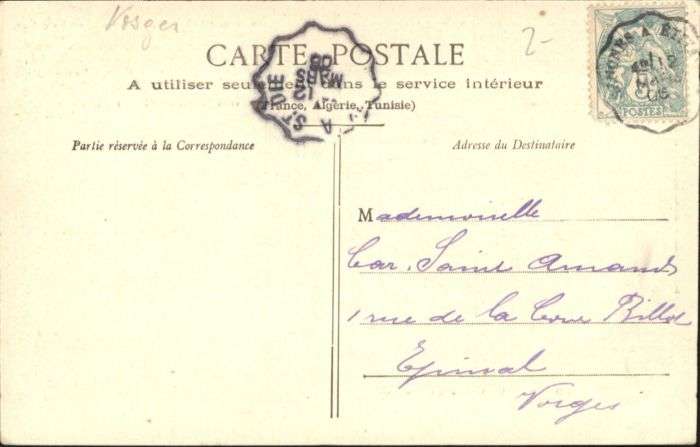 Vosges
2-
CARTE POSTALE
A utiliser seulement dans le service intérieur
(France, Algérie, Tunisie)
Partie réservée à la Correspondance
Adresse du Destinataire
POSTES
Mademoiselle
Car. Saint Amand
1 rue de la Cour Billot
Epinal
Vosges